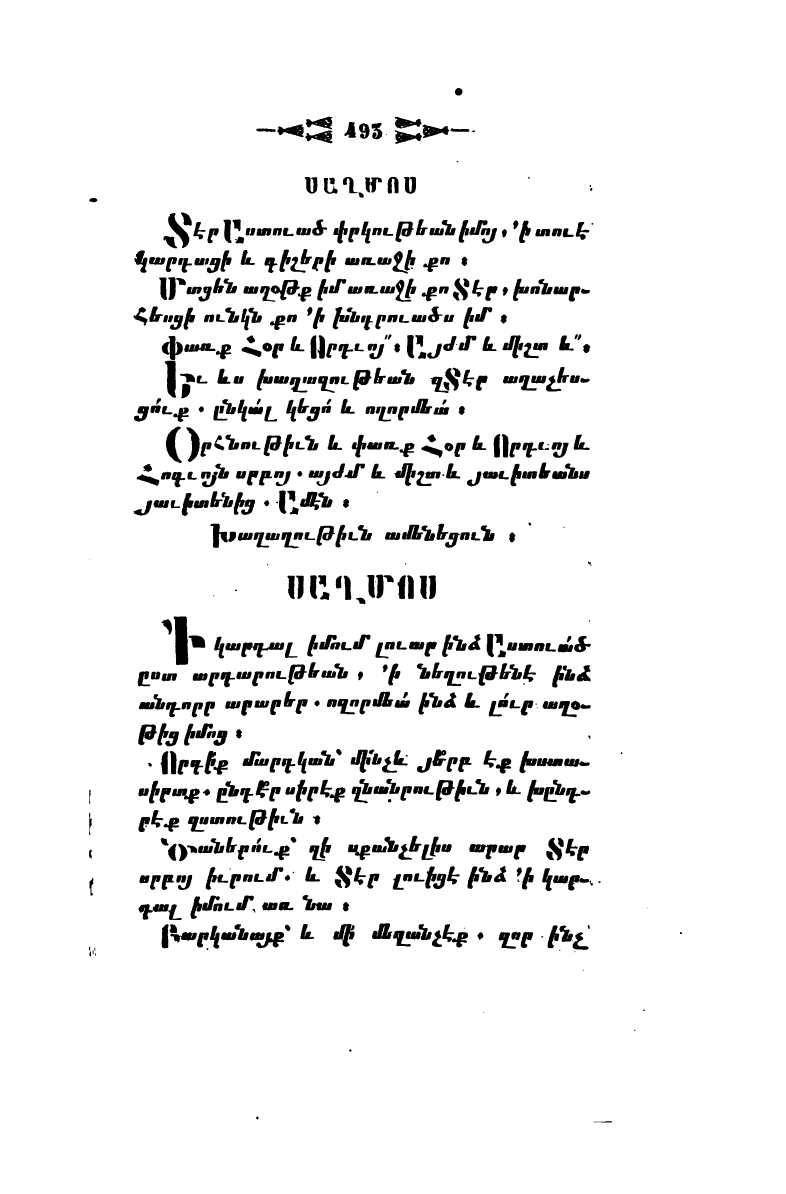 493
ՍԱՂՄՈՍ
Տէր Աստուած փրկութեան իմոյ, ՚ի տուէ
կարդացի և գիշերի առաջի քո ։
Մտցեն աղօթք իմ առաջի քո Տէր, խոնար-
հեսցի ունկն քո ՚ի խնդրուածս իմ ։
Փառք Հօր և Որդւոյ՞։ Այժմ և միշտ և՞։
Եւ ևս խաղաղութեան զՏէր աղաչես-
ցո՛ւք . ընկա՛լ կեցո՛ և ողորմեա՛ ։
Օրհնութիւն և փառք Հօր և Որդւոյ և
Հոգւոյն սրբոյ . այժմ և միշտ և յաւիտեանս
յաւիտենից . Ամէն ։
Խաղաղութիւն ամենեցուն ։
ՍԱՂՄՈՍ
՚Ի կարդալ իմում լուար ինձ Աստուա՛ծ
ըստ արդարութեան , ՚ի նեղութենէ ինձ
անդորր արարեր . ողորմեա՛ ինձ և լո՛ւր աղօ-
թից իմոց ։
Որդիք մարդկան՝ մինչև յե՞րբ էք խստա-
սիրտք . ընդէ՞ր սիրէք զնանրութիւն , և խընդ-
րէք զստութիւն ։
Ծաներո՛ւք՝ զի սքանչելիս արար Տէր
սրբոյ իւրում . և Տէր լուիցէ ինձ ՚ի կար-
դալ իմում առ նա ։
Բարկանայք՝ և մի մեղանչէք . զոր ինչ